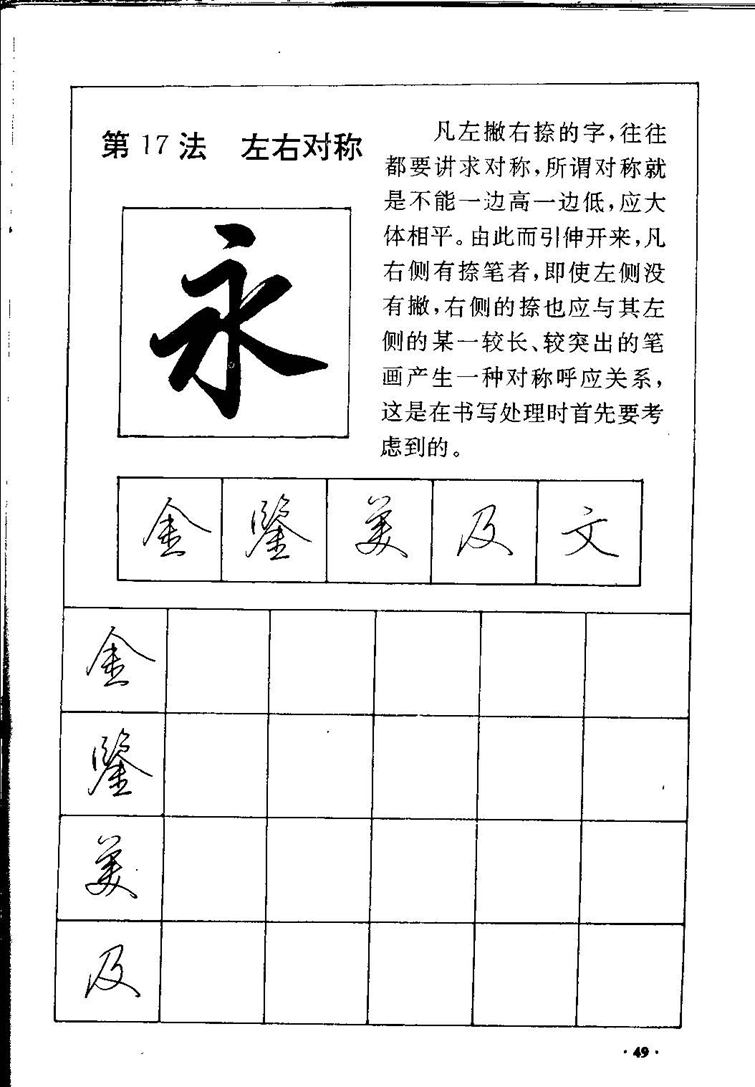 第17法 左右对称
凡左撇右捺的字，往往
都要讲求对称，所谓对称就
是不能一边高一边低，应大
体相平。由此而引伸开来，凡
右侧有捺笔者，即使左侧没
有撇，右侧的捺也应与其左
侧的某一较长、较突出的笔
画产生一种对称呼应关系，
这是在书写处理时首先要考
虑到的。
永
金 鑒 美 及 文
金
鑒
美
及
·49·